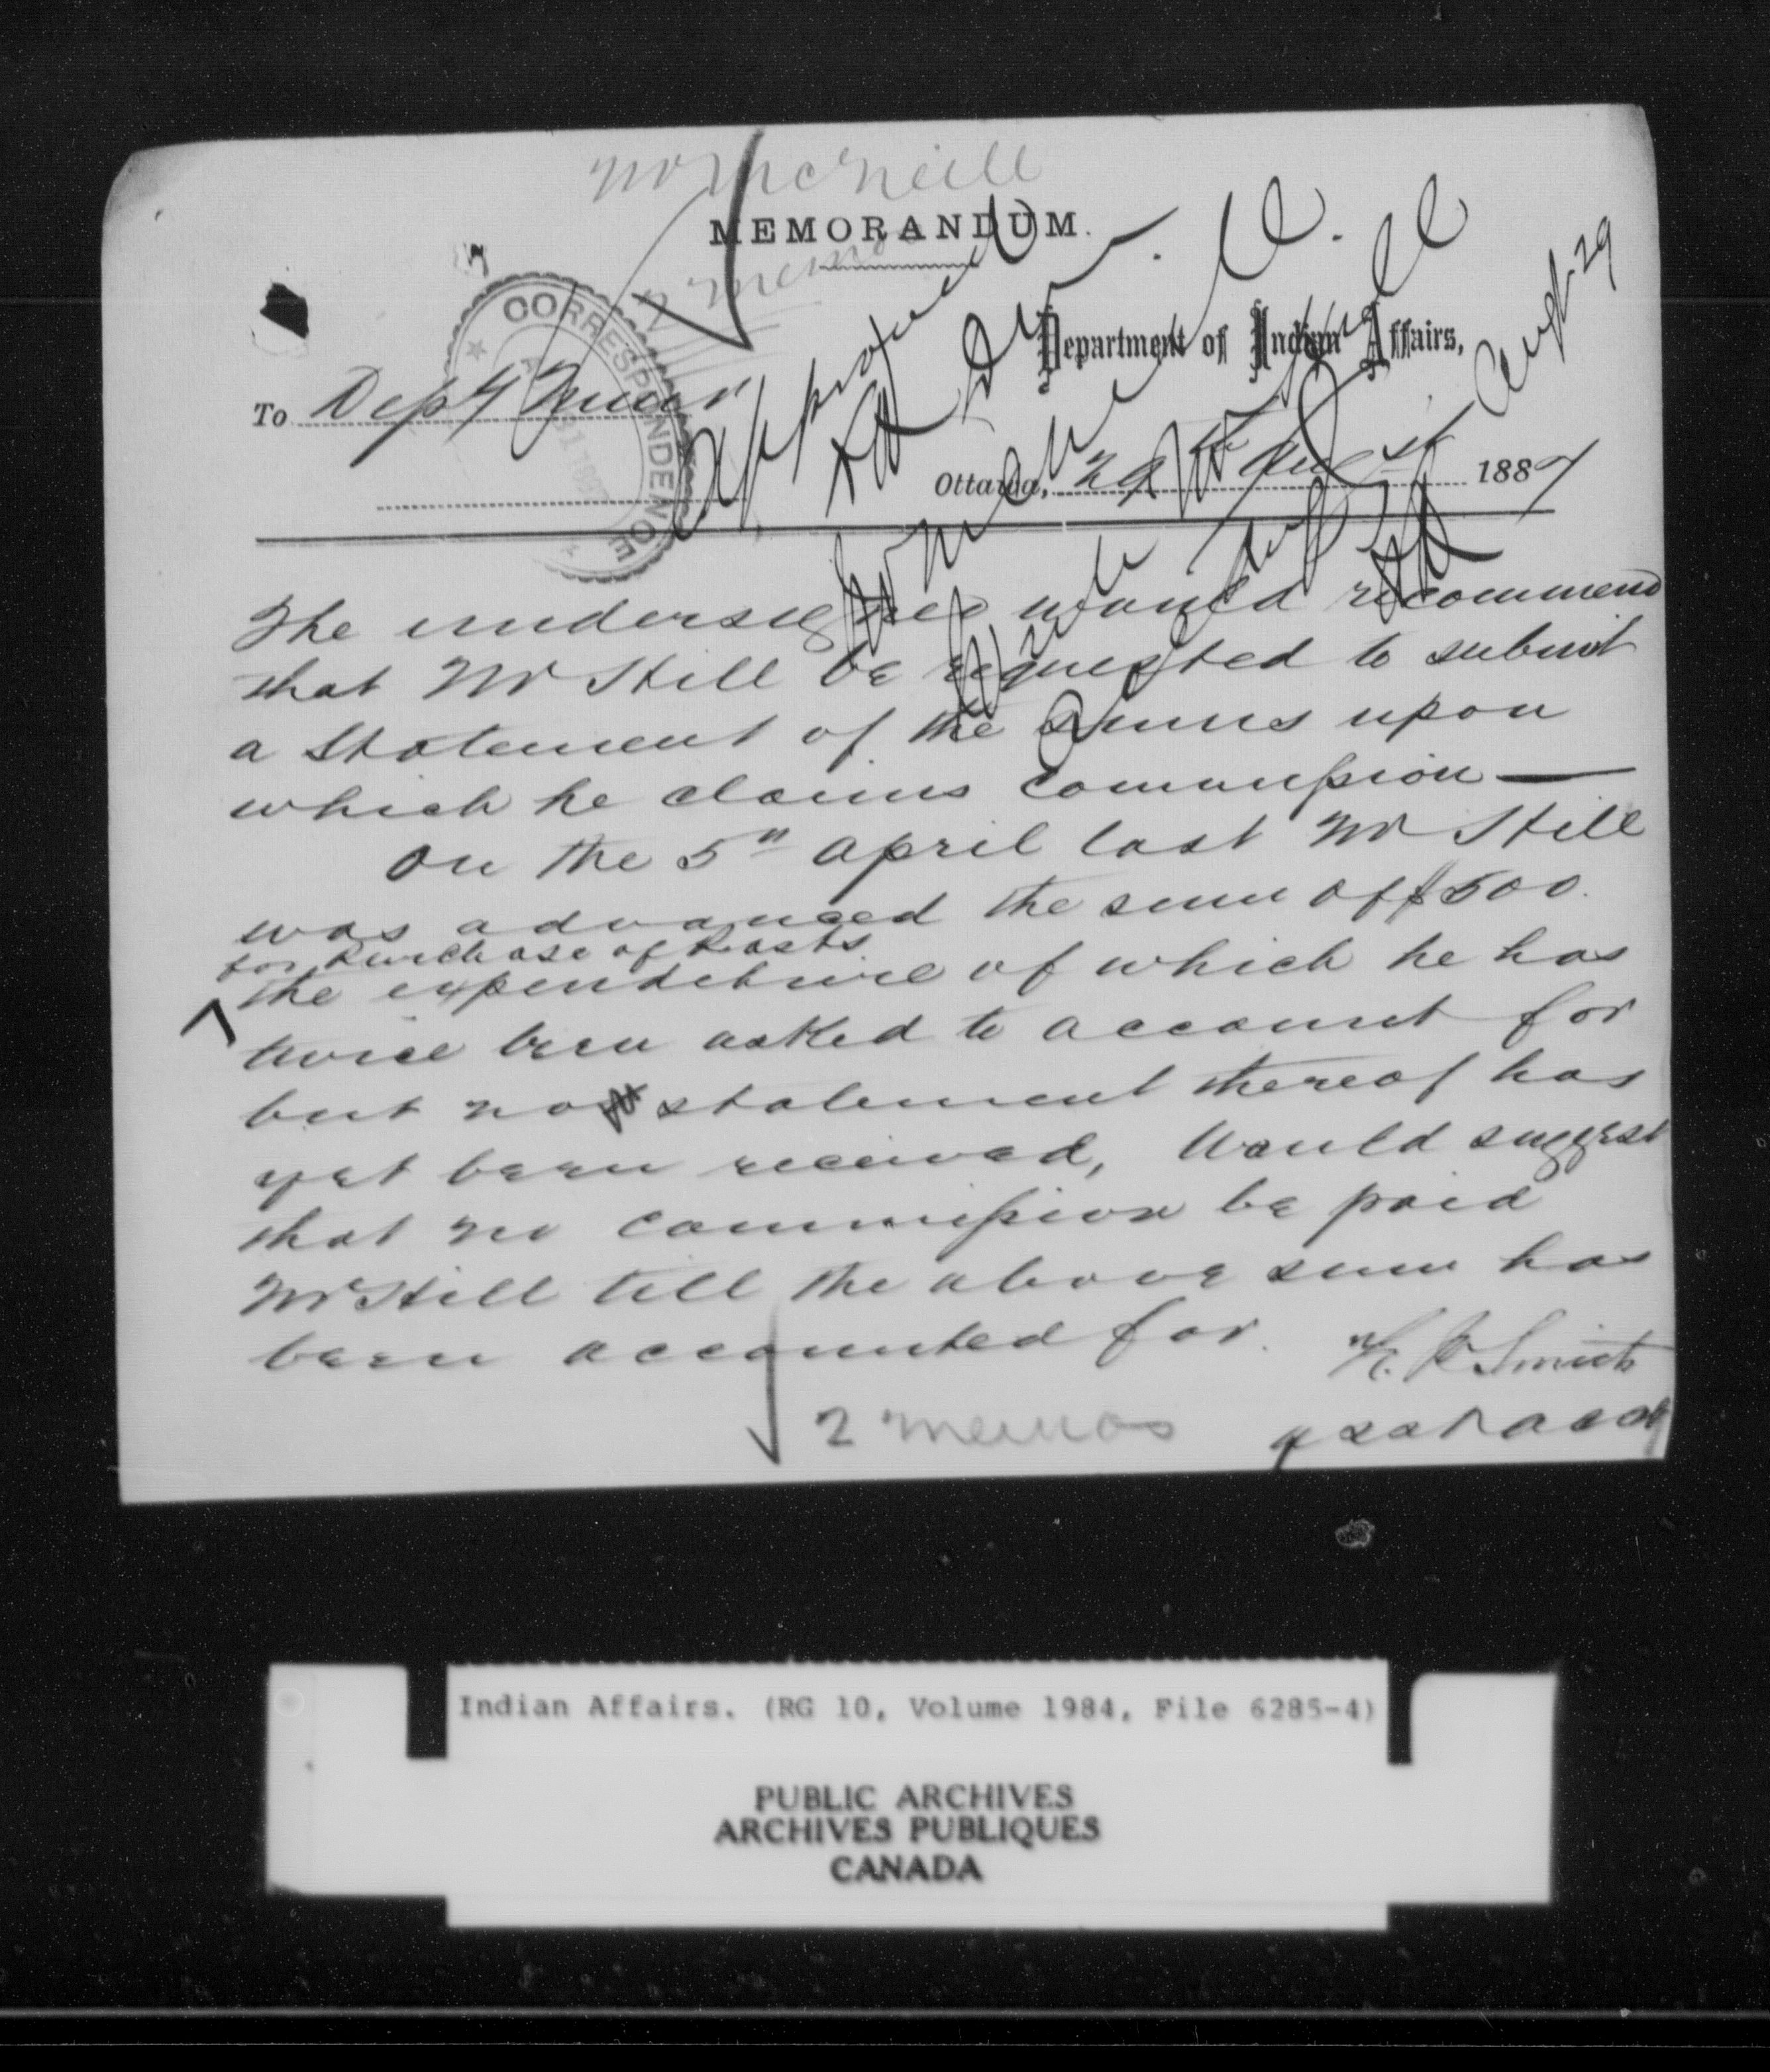 Mr McNeill
MEMORANDUM.
2 memos
CORRESPONDENCE
Approved
Augt 29
Department of Indian Affairs,
To Depy
Ottawa, 29th Augst 1887
The undersigned would recommend
that Mr Still be requested to submit
a statement of the sums upon
which he claims commission —
On the 5th April last Mr Still
was advanced the sum of $500.
for purchase of
the expenditure of which he has
twice been asked to account for
but no statement thereof has
yet been received, Would suggest
that no commission be paid
Mr Still till the above sum has
been accounted for.
Smith
2 memos
Indian Affairs. (RG 10, Volume 1984, File 6285-4)
PUBLIC ARCHIVES
ARCHIVES PUBLIQUES
CANADA